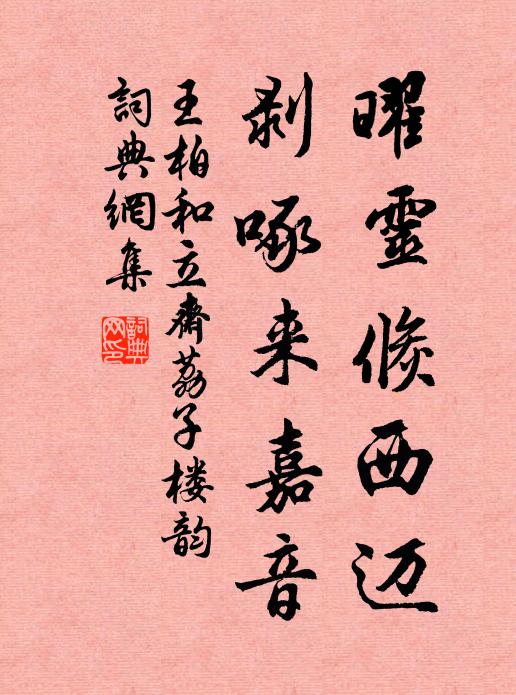 曜靈倏西迈
剥啄来嘉音
王柏和立齋荔子楼韵
詞典網集
詞典网印